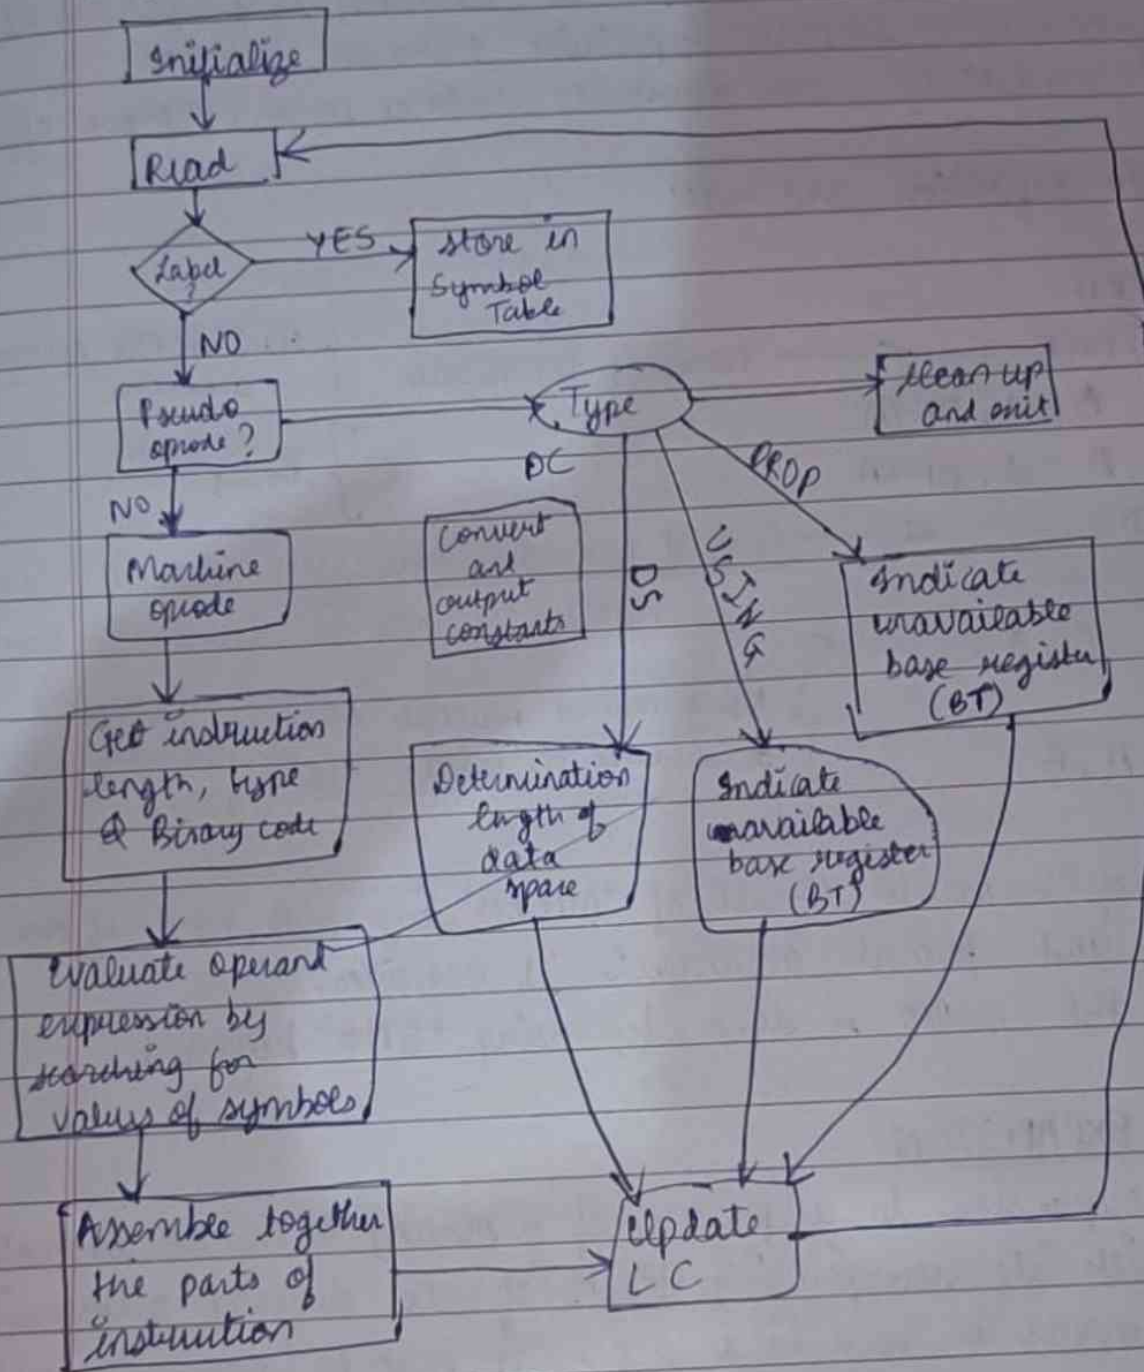 Initialize
Read
Label
?
YES
store in
Symbol
Table
NO
Pseudo
opcode ?
Type
clean up
and exit
DC
DROP
NO
Machine
opcode
Convert
and
output
constants
DS
USING
Indicate
unavailable
base register
(BT)
Get instruction
length, type
& Binary code
Determination
length of
data
space
Indicate
available
base register
(BT)
Evaluate operand
expression by
searching for
values of symbols
Assemble together
the parts of
instruction
Update
LC